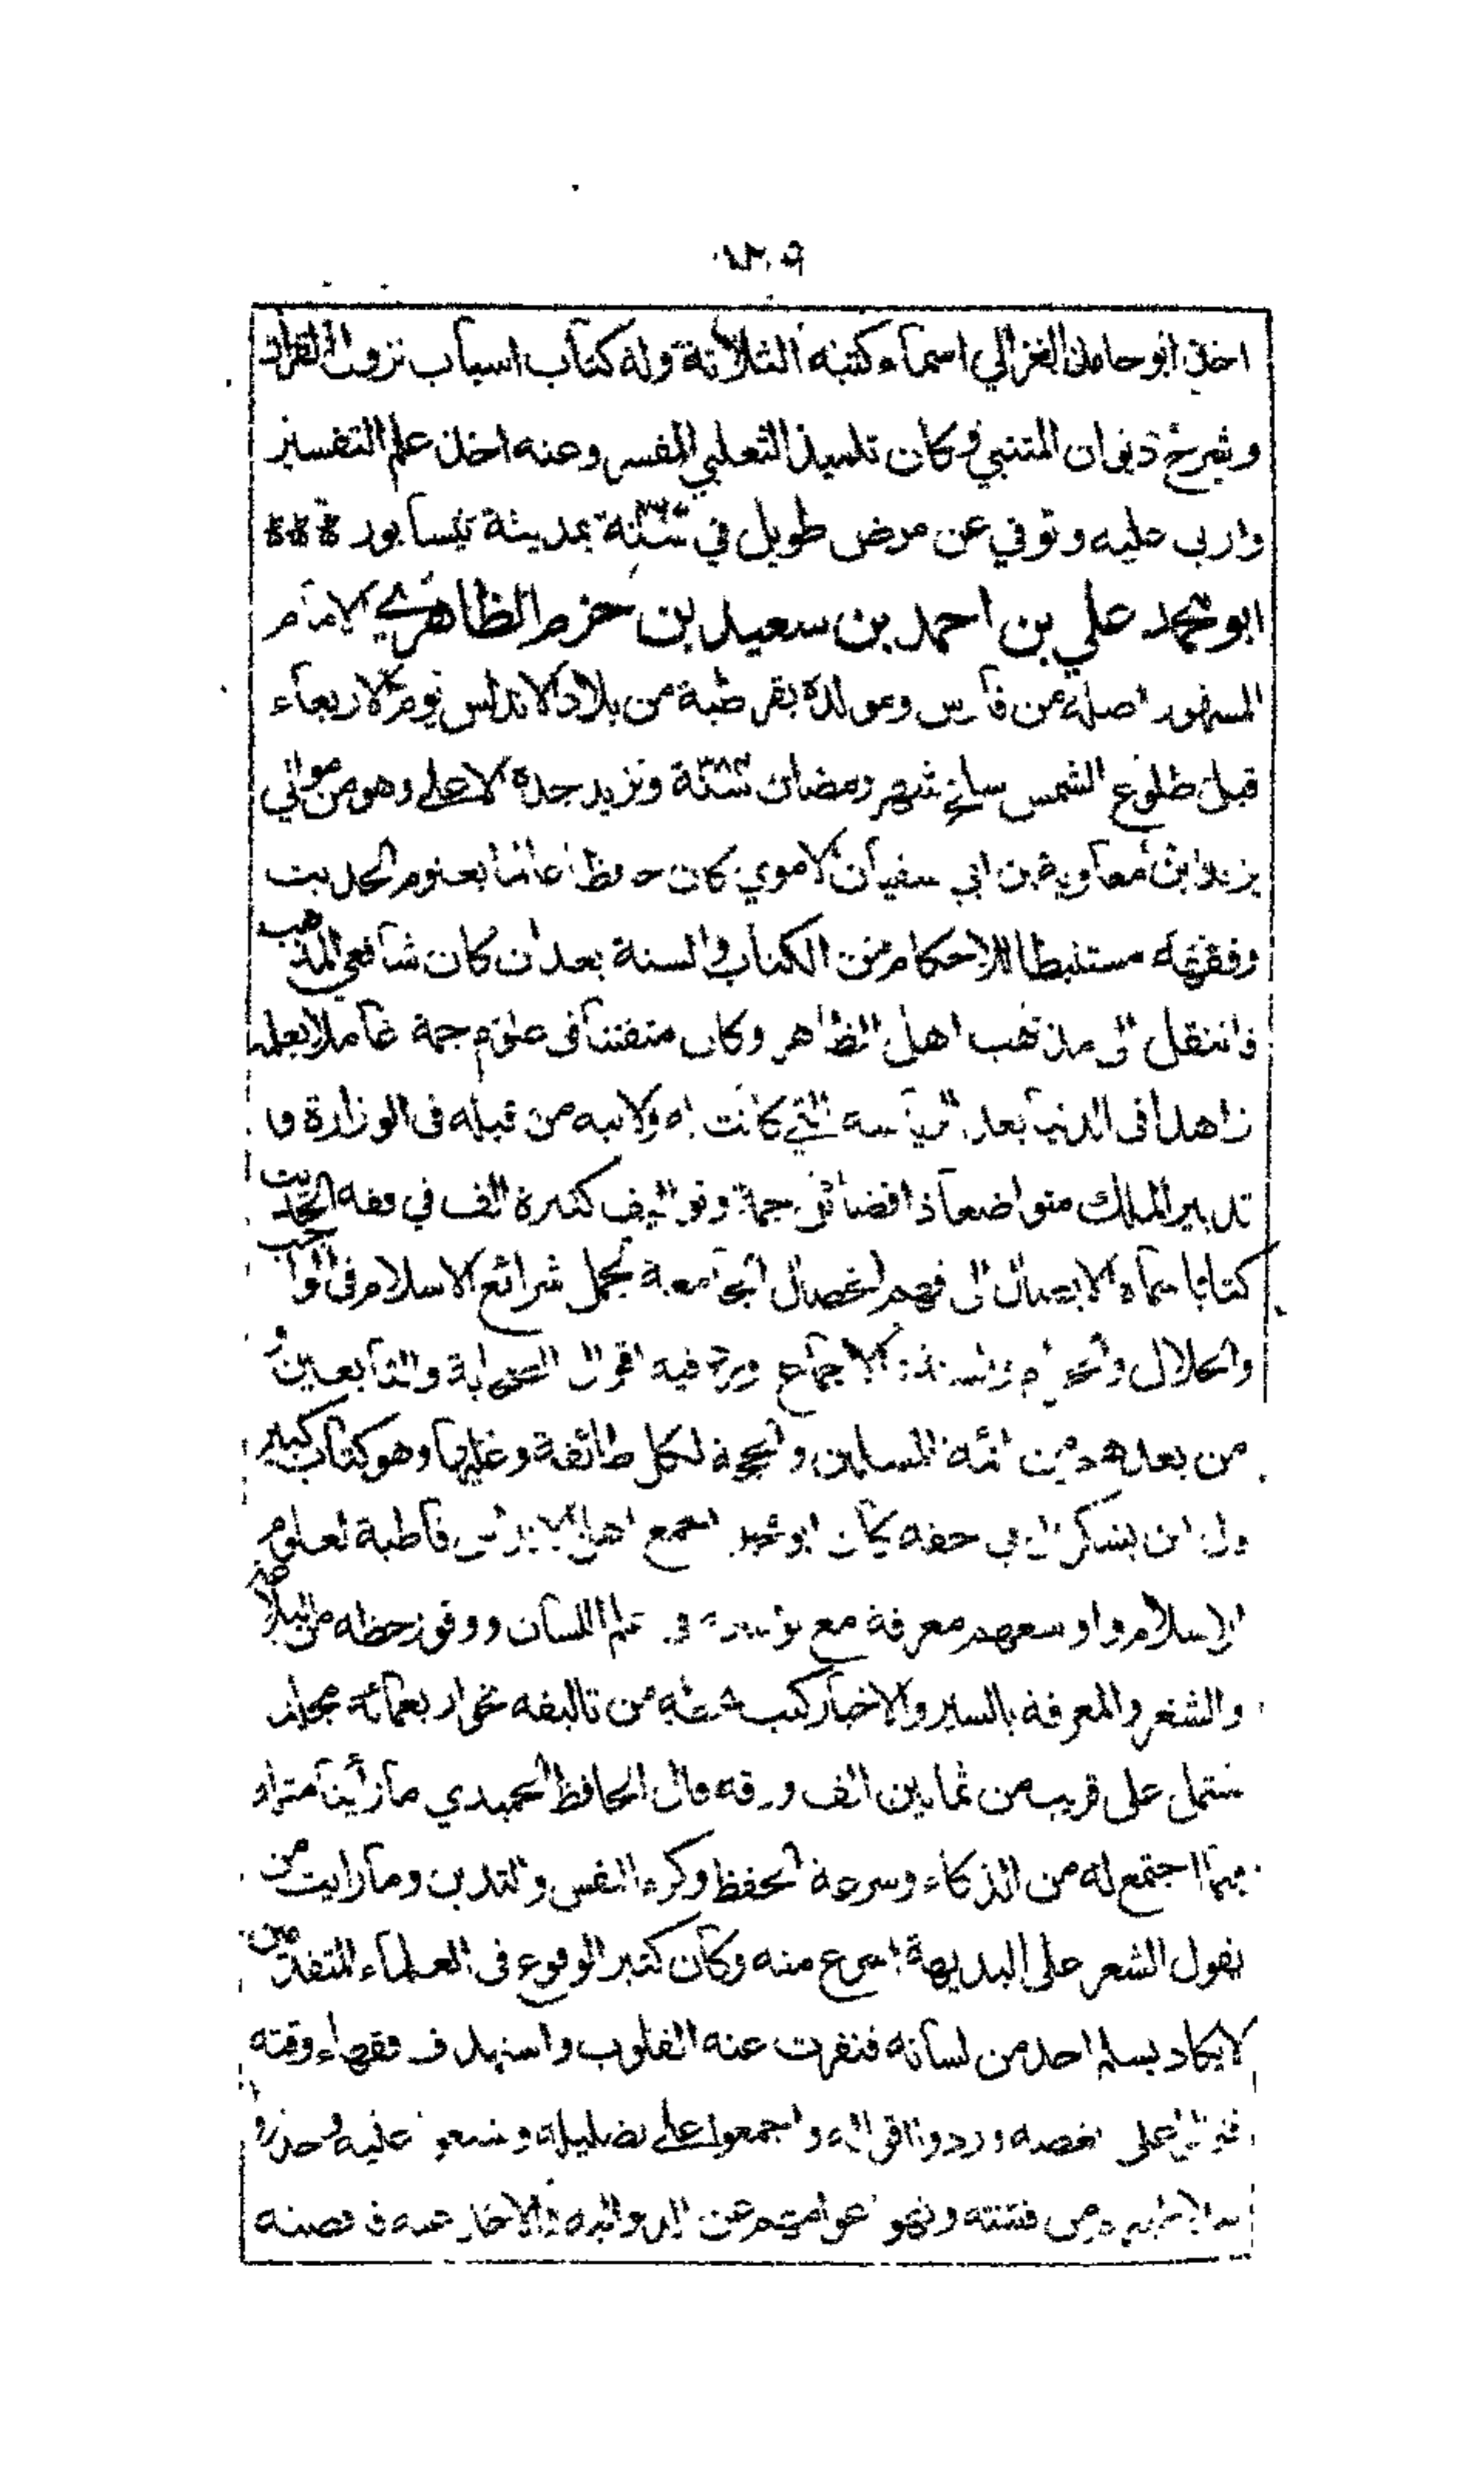 اخذ ابو حامد الغزالي اسماء كتبه الثلاثة وله كتاب اسباب نزول القرآن
وشرح ديوان المتنبي وكان تلميذ الثعلبي المفسر وعنه اخذ علم التفسير
واربى عليه وتوفي عن مرض طويل في سنة بمدينة نيسابور
ابو محمد علي بن احمد بن سعيد بن حزم الظاهري الامام
المشهور اصله من فارس ومولده بقرطبة من بلاد الاندلس يوم الاربعاء
قبل طلوع الشمس سلخ شهر رمضان سنة ٣٨٤ ويزيد جده الاعلى وهو من موالي
يزيد ابن معاوية بن ابي سفيان الاموي كان حافظا عالما بعلوم الحديث
وفقهه مستنبطا للاحكام من الكتاب والسنة بعد ان كان شافعي المذهب
فانتقل الى مذهب اهل الظاهر وكان متفننا في علوم جمة عاملا بعلمه
زاهدا في الدنيا بعد الرياسة التي كانت له ولابيه من قبله في الوزارة و
تدبير الملك متواضعا ذا فضائل جمة وتواليف كثيرة الف في فقه الحديث
كتابا سماه الايصال الى فهم الخصال الجامعة لجمل شرائع الاسلام في الواجب
والحلال والحرام والسنة والاجماع ورد فيه اقوال الصحابة والتابعين و
من بعدهم من ائمة المسلمين والحجة لكل طائفة وعليها وهو كتاب كبير
قال ابن بشكوال في حقه كان ابو محمد اجمع اهل الاندلس قاطبة لعلوم
الاسلام واوسعهم معرفة مع توسعه في علم اللسان ووفور حظه من البلاغة
والشعر والمعرفة بالسير والاخبار كتب بخطه من تاليفه نحو اربعمائة مجلد
تشتمل على قريب من ثمانين الف ورقه قال الحافظ الحميدي ما رأينا مثله
فيما اجتمع له من الذكاء وسرعة الحفظ وكرم النفس والتدين وما رايت من
يقول الشعر على البديهة اسرع منه وكان كثير الوقوع في العلماء المتقدمين
لا يكاد يسلم احد من لسانه فنفرت عنه القلوب واستهدف فقهاء وقته
على بغضه وردوا اقواله واجمعوا على تضليله وشنعوا عليه وحذروا
من فتنته ونهوا عوامهم عن الدنو اليه والاخذ عنه